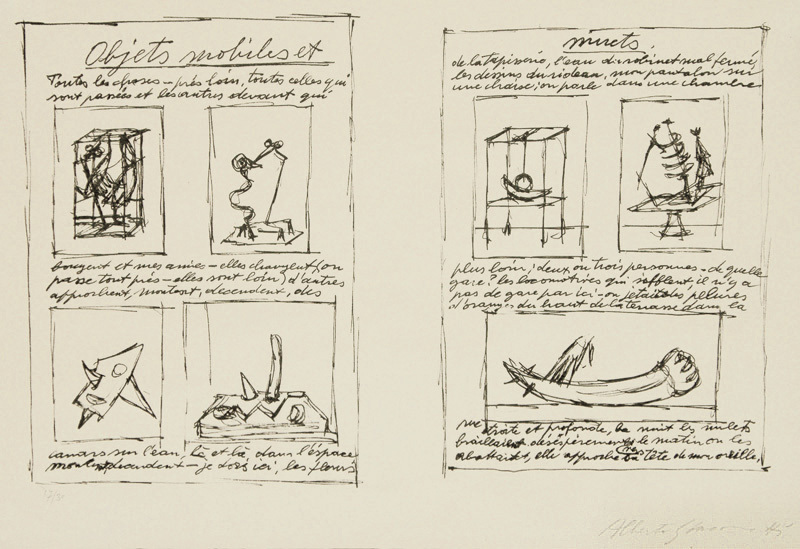 Objets mobiles et
Toutes les choses - près loin, toutes celles qui
sont passées et les autres devant qui
bougent et mes amies - elles changent (on
passe tout près - elles sont loin) d'autres
approchent, montent, descendent, des
canars sur l'eau, là et là, dans l'éspace
montent descendent - je dors ici, les fleurs
muets
de la tapisserie, l'eau du robinet mal fermé
les dessins du rideau, mon pantalon sur
une chaise, on parle dans une chambre
plus loin; deux ou trois personnes - de quelle
gare? les locomotives qui sifflent, il n'y a
pas de gare par ici - on jetait des pelures
d'orange du haut de la terrasse dans la
rue étroite et profonde, la nuit les mulets
braillaient désésperement vers le matin on les
abattait, elle approche sa tête de mon oreille,
Alberto Giacometti